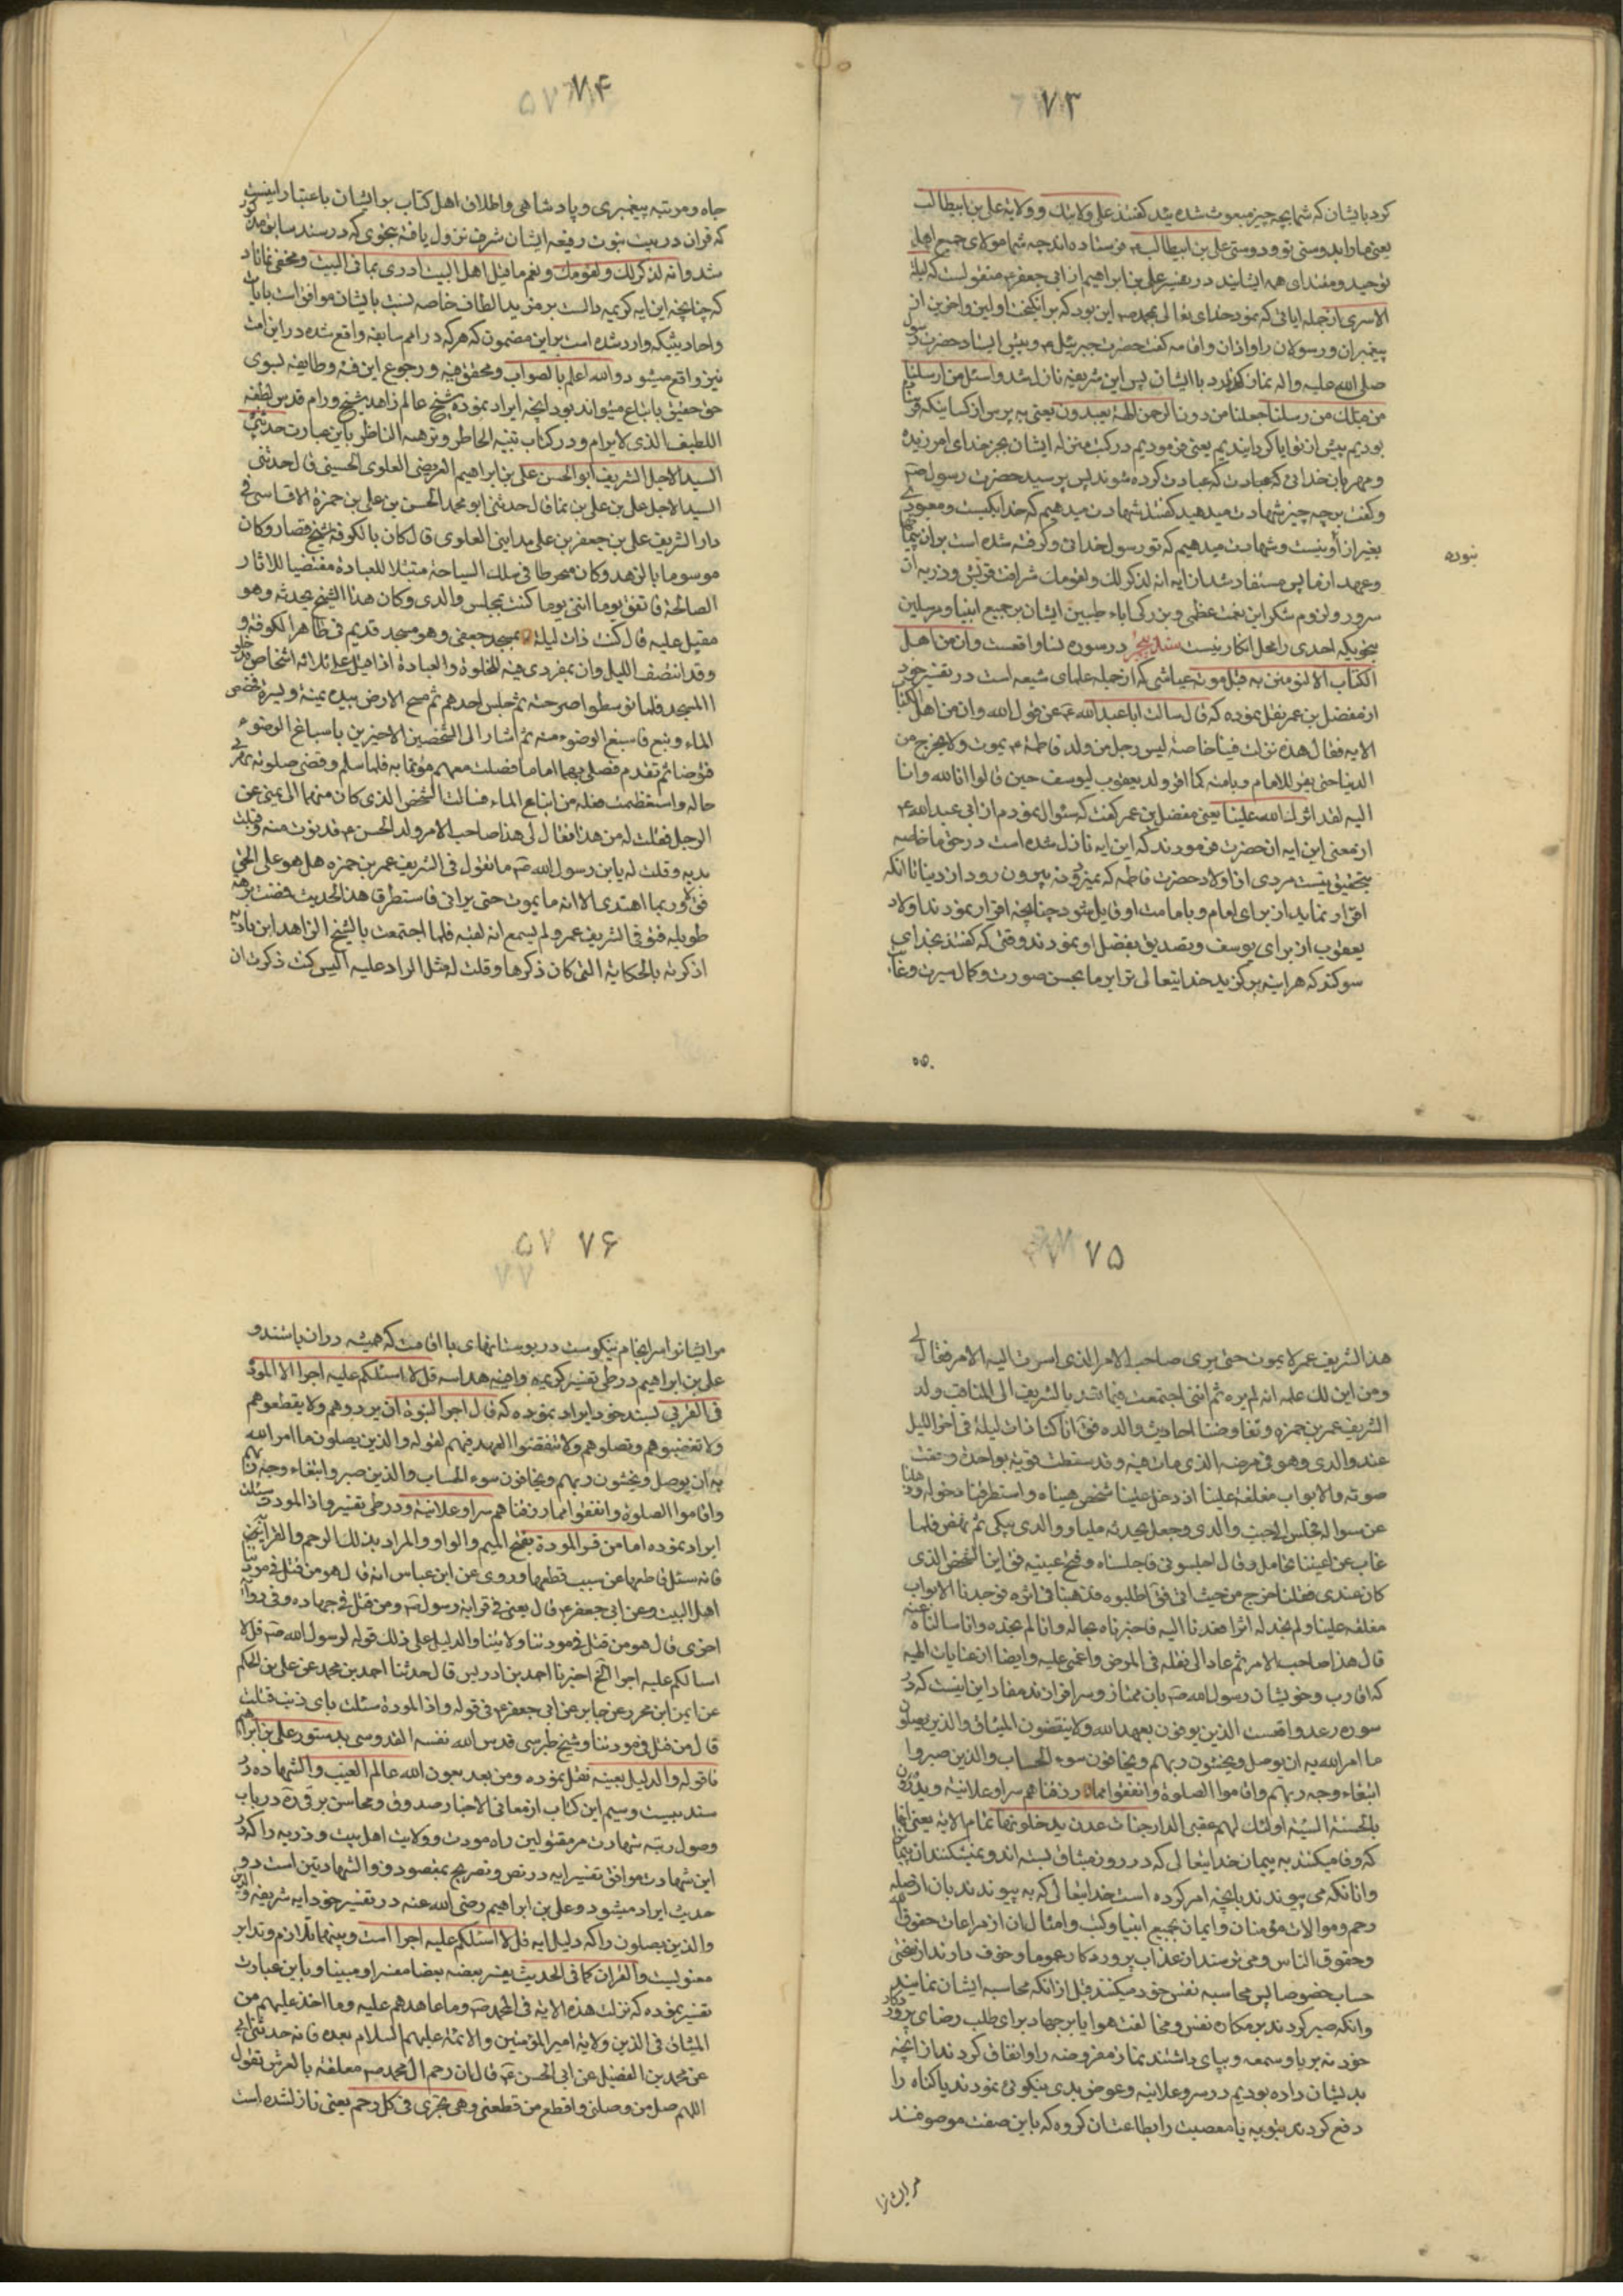 ۷۳
کرد بایشان که شما بچه چیز مبعوث شده‌ید گفتند علی ولایتک و ولایة علی بن ابیطالب
یعنی ما را بدوستی تو و دوستی علی بن ابیطالب فرستاده‌اند چه شما مولای جمیع اهل
توحید و مقتدای همه ایشانید در تفسیر علی بن ابراهیم از ابی جعفر ع منقول است که لیلة
الاسری از جمله ایاتی که نمود خدای تعالی بمحمد ص این بود که برانگیخت اولین و اخرین از
پیغمبران و رسولان را و اذان و اقامه گفت حضرت جبرئیل ع و پیش ایستاد حضرت رسول
صلی الله علیه و اله نماز گذارد با ایشان پس این شریفه نازل شد و اسئل من ارسلنا
من قبلک من رسلنا اجعلنا من دون الرحمن الهة یعبدون یعنی به پرس از کسانیکه فرستاده
بودیم پیش از تو ایا گردانیدیم یعنی فرمودیم در کتب منزله ایشان بجز خدای امرزنده
و مهربان خدائی که عبادت کرده شوند پس پرسید حضرت رسول ص
و گفت برچه چیز شهادت میدهید گفتند شهادت میدهیم که خدا یکیست و معبودی
بغیر از او نیست و شهادت میدهیم که تو رسول خدائی و گرفته شده است بر ان پیمانها
نبوده
و عهد از ما پس مستفاد شد از ایه انه لذکر لک و لقومک شرافت قریش و ذریه ان
سرور و لزوم شکر این نعمت عظمی و بزرگی اباء طیبین ایشان بر جمیع انبیا و مرسلین
بنحویکه احدی را محل انکار نیست سند پنجم در سوره نسا واقعست و ان من اهل
الکتاب الا لیؤمنن به قبل موته عیاشی که از جمله علمای شیعه است در تفسیر خود
از مفضل بن عمر نقل نموده که قال سالت ابا عبد الله ع عن قول الله و ان من اهل الکتاب
الایه فقال هذه نزلت فینا خاصة لیس رجل من ولد فاطمة ع یموت و لا یخرج من
الدنیا حتی یقر للامام و بامامته کما اقر ولد یعقوب لیوسف حین قالوا تالله
لقد اثرک الله علینا یعنی مفضل بن عمر گفت که سئوال نمودم از ابی عبد الله ع
از معنی این ایه ان حضرت فرمودند که این ایه نازل شده است در حق ما خاصه
بتحقیق نیست مردی از اولاد حضرت فاطمه که بمیرد و نه بیرون رود از دنیا تا انکه
اقرار نماید از برای امام و بامامت او قایل شود چنانچه اقرار نمودند اولاد
یعقوب از برای یوسف و تصدیق بفضل او نمودند وقتی که گفتند بخدای
سوگند که هراینه برگزید خدایتعالی ترا بر ما بحسن صورت و کمال سیرت و
۷۴
جاه و مرتبه پیغمبری و پادشاهی و اطلاق اهل کتاب بر ایشان باعتبار اینست
که قران در بیت نبوت رفیعه ایشان شرف نزول یافته بنحوی که در سند سابق مذکور
شد و انه لذکر لک و لقومک و نعم ما قیل اهل البیت ادری بما فی البیت و مخفی نماناد
که چنانچه این ایه کریمه دالست بر مزید الطاف خاصه نسبت بایشان موافق است بایات
و احادیثیکه وارد شده است براین مضمون که هر که در امم سابقه واقع شده در این امت
نیز واقع میشود و الله اعلم بالصواب و محقق فیه و رجوع این فئه و طایفه بسوی
حق حقیق باتباع میتواند بود انچه ایراد نموده شیخ عالم زاهد شیخ ورام قدس لطفه
اللطیف الذی لا یرام در کتاب تنبیه الخاطر و نزهة الناظر باین عبارت حدثنی
السید الاجل الشریف ابو الحسن علی بن ابراهیم العریضی العلوی الحسینی قال حدثنی
السید الاجل علی بن علی بن نما قال حدثنی ابو محمد الحسن بن علی بن حمزة الاقساسی فی
دار الشریف علی بن جعفر بن علی مداینی العلوی قال کان بالکوفة شیخ قصار و کان
موسوما بالزهد و کان منخرطا فی سلک السیاحة متبتلا للعبادة مقتضیا للاثار
الصالحة فاتفق یوما اننی یوما کنت بمجلس والدی و کان هذا الشیخ یحدثه و هو
مقبل علیه قال کنت ذات لیلة بمسجد جعفی و هو مسجد قدیم فی ظاهر الکوفة و
و قد انتصف اللیل و ان بمفردی فیه للخلوة و العبادة اذا اقبل علی ثلاثة اشخاص فدخلوا
المسجد فلما توسطوا صرحته ثم جلس احدهم ثم مسح الارض بیده یمنة و یسرة فخضخض
الماء و نبع فاسبغ الوضوء منه ثم اشار الی الشخصین الاخیرین باسباغ الوضوء
فتوضائا ثم تقدم فصلی بهما اماما فصلیت معهم مؤتما به فلما سلم و قضی صلوته بهرنی
حاله و استعظمت فعله من انباع الماء فسالت الشخص الذی کان منهما الی یمینی عن
الرجل فقلت له من هذا فقال لی هذا صاحب الامر ولد الحسن ع فدنوت منه و قبلت
یدیه و قلت له یابن رسول الله ص ما تقول فی الشریف عمر بن حمزه هل هو علی الحق
فق لا و ربما اهتدی الا انه ما یموت حتی یرانی فاستطرفنا هذا الحدیث فمضت برهة
طویله فتوفی الشریف عمر و لم یسمع انه لقیه فلما اجتمعت بالشیخ الزاهد ابن بادیه
اذکرته بالحکایة التی کان ذکرها و قلت له مثل الراد علیه الیس کنت ذکرت ان
۷۵
هذا الشریف عمر لا یموت حتی یری صاحب الامر الذی اشرت الیه الامر فقال لی
و من این لک علم انه لم یره ثم اننی اجتمعت فیما بعد بالشریف ابی المناقب ولد
الشریف عمر بن حمزه و تفاوضنا احادیث والده فق انا کنا ذات لیلة فی اخر اللیل
عند والدی و هو فی مرضه الذی مات فیه و قد سقطت قوته بواحدة و خفت
صوته و الابواب مغلقة علینا اذ دخل علینا شخص هبناه و استطرفنا دخوله و ذهلنا
عن سواله فجلس الی جنب والدی و جعل یحدثه ملیا و والدی یبکی ثم نهض فلما
غاب عن اعیننا تحامل و قال اجلسونی فاجلسناه و فتح عینیه فق این الشخص الذی
کان عندی فقلنا خرج من حیث اتی فق اطلبوه فذهبنا فی اثره فوجدنا الابواب
مغلقه علینا و لم نجد له اثرا فعدنا الیه فاخبرناه بحاله و انا لم نجده و انا سالناه عنه
قال هذا صاحب الامر ثم عاد الی نقله فی المرض و اغمی علیه و ایضا از عنایات الهیه
که اقارب و خویشان رسول الله ص بان ممتاز و سرافرازند مفاد این ایتست که در
سوره رعد واقعست الذین یوفون بعهد الله و لا ینقضون المیثاق و الذین یصلون
ما امر الله به ان یوصل و یخشون ربهم و یخافون سوء الحساب و الذین صبروا
ابتغاء وجه ربهم و اقاموا الصلوة و انفقوا مما رزقناهم سرا و علانیة و یدرؤن
بالحسنة السیئة اولئک لهم عقبی الدار جنات عدن یدخلونها تمام الایه یعنی انها
که وفا میکنند به پیمان خدایتعالی که در روز میثاق بسته‌اند و نمیشکنند ان پیمانرا
و انانکه می پیوندند بانچه امر کرده است خدایتعالی که به پیوندند بان از صله
رحم و موالات مؤمنان و ایمان بجمیع انبیا و کتب و امثال ان از مراعات حقوق الله
و حقوق الناس و میترسند از عذاب پروردکار عموما و خوف دارند از سختی
حساب خصوصا پس محاسبه نفس خود میکنند قبل از انکه محاسبه ایشان نمایند
و انکه صبر کردند بر مکاره نفس و مخالفت هوا یا بر جهاد برای طلب رضای پروردکار
خود نه بریا و سمعه و بپای داشتند نماز مفروضه را و انفاق کردند از انچه
بدیشان داده بودیم در سر و علانیه و عوض بدی نیکوئی نمودند یا گناه را
دفع کردند بتوبه یا معصیت را بطاعت ان گروه که باین صفت موصوفند
مر ایشانرا
۷۶
مر ایشانرا سرانجام نیکوست در بوستانهای با اقامت که همیشه در ان باشند و
علی بن ابراهیم در طی تفسیر کریمه وافیه هدایه قل لا اسئلکم علیه اجرا الا المودة
فی القربی بسند خود ایراد نموده که قال اجر النبوة ان یردوهم و لا یقطعوهم
و لا تغضبوهم و تصلوهم و لا تنقضوا العهد فیهم لقوله و الذین یصلون ما امر الله
به ان یوصل و یخشون ربهم و یخافون سوء الحساب و الذین صبروا ابتغاء وجه ربهم
و اقاموا الصلوة و انفقوا مما رزقناهم سرا و علانیة و در طی تفسیر و اذا المودة سئلت
ایراد نموده اما من قرا المودة بفتح المیم و الواو و المراد بذلک الرحم و القرابة
فانه سئل قاطعها عن سبب قطعها و روی عن ابن عباس انه قال هو من قتل فی مودتنا
اهل البیت و عن ابی جعفر ع قال یعنی فی قرابة رسول ص و من قتل فی جهاده و فی روایة
اخری قال هو من قتل فی مودتنا و لایتنا و الدلیل علی ذلک قوله لرسول الله ص قل لا
اسالکم علیه اجرا الخ اخبرنا احمد بن ادریس قال حدثنا احمد بن محمد عن علی بن الحکم
عن ایمن ابن محرز عن جابر عن ابی جعفر ع فی قوله و اذا المودة سئلت بای ذنب قتلت
قال من قتل فی مودتنا و شیخ طبرسی قدس الله نفسه القدوسی بدستور علی بن ابراهیم
فاتوله و الدلیل بعینه نقل نموده و من بعد بعون الله عالم الغیب و الشهاده در
سند بیست و سیم این کتاب از معانی الاخبار صدوق و محاسن برقی ره در باب
وصول رتبه شهادت مر مقتولین راه مودت و ولایت اهل بیت و ذریه را که در
این شهادت موافق تفسیر ایه در نص و تصریح بمقصود ذو الشهادتین است دو
حدیث ایراد میشود و علی بن ابراهیم رضی الله عنه در تفسیر خود ایه شریفه و الذین
والذین یصلون را که دلیل ایه قل لا اسئلکم علیه اجرا است و بینهما تلازم و تدابر
معنویست و القران کما فی الحدیث یفسر بعضه بعضا مفسر و مبینا و باین عبارت
تفسیر نموده که نزلت هذه الایة فی ال محمد ص و ما عاهدهم علیه و ما اخذ علیهم من
المیثاق فی الذین ولایة امیر المؤمنین و الائمة علیهم السلام بعده فانه حدثنی ابی
عن محمد بن الفضیل عن ابی الحسن ع قال ان رحم ال محمد ص معلقة بالعرش تقول
اللهم صل من وصلنی و اقطع من قطعنی و هی تجری فی کل رحم یعنی نازل شده است